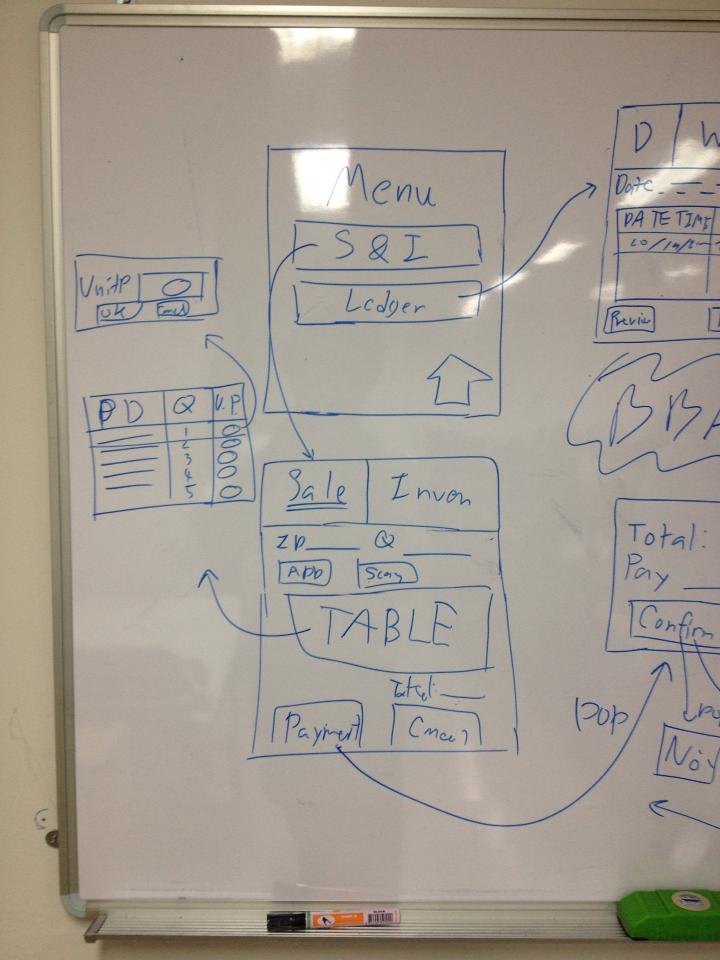 Menu
S & I
Ledger
UnitP
OK
PD Q U.P.
1
2
3
4
5
Sale Inven
ID Q
ADD Scan
TABLE
Total:
Payment Cancel
D W
Date
DATETIME
BBA
Total:
Pay
Confirm
pop